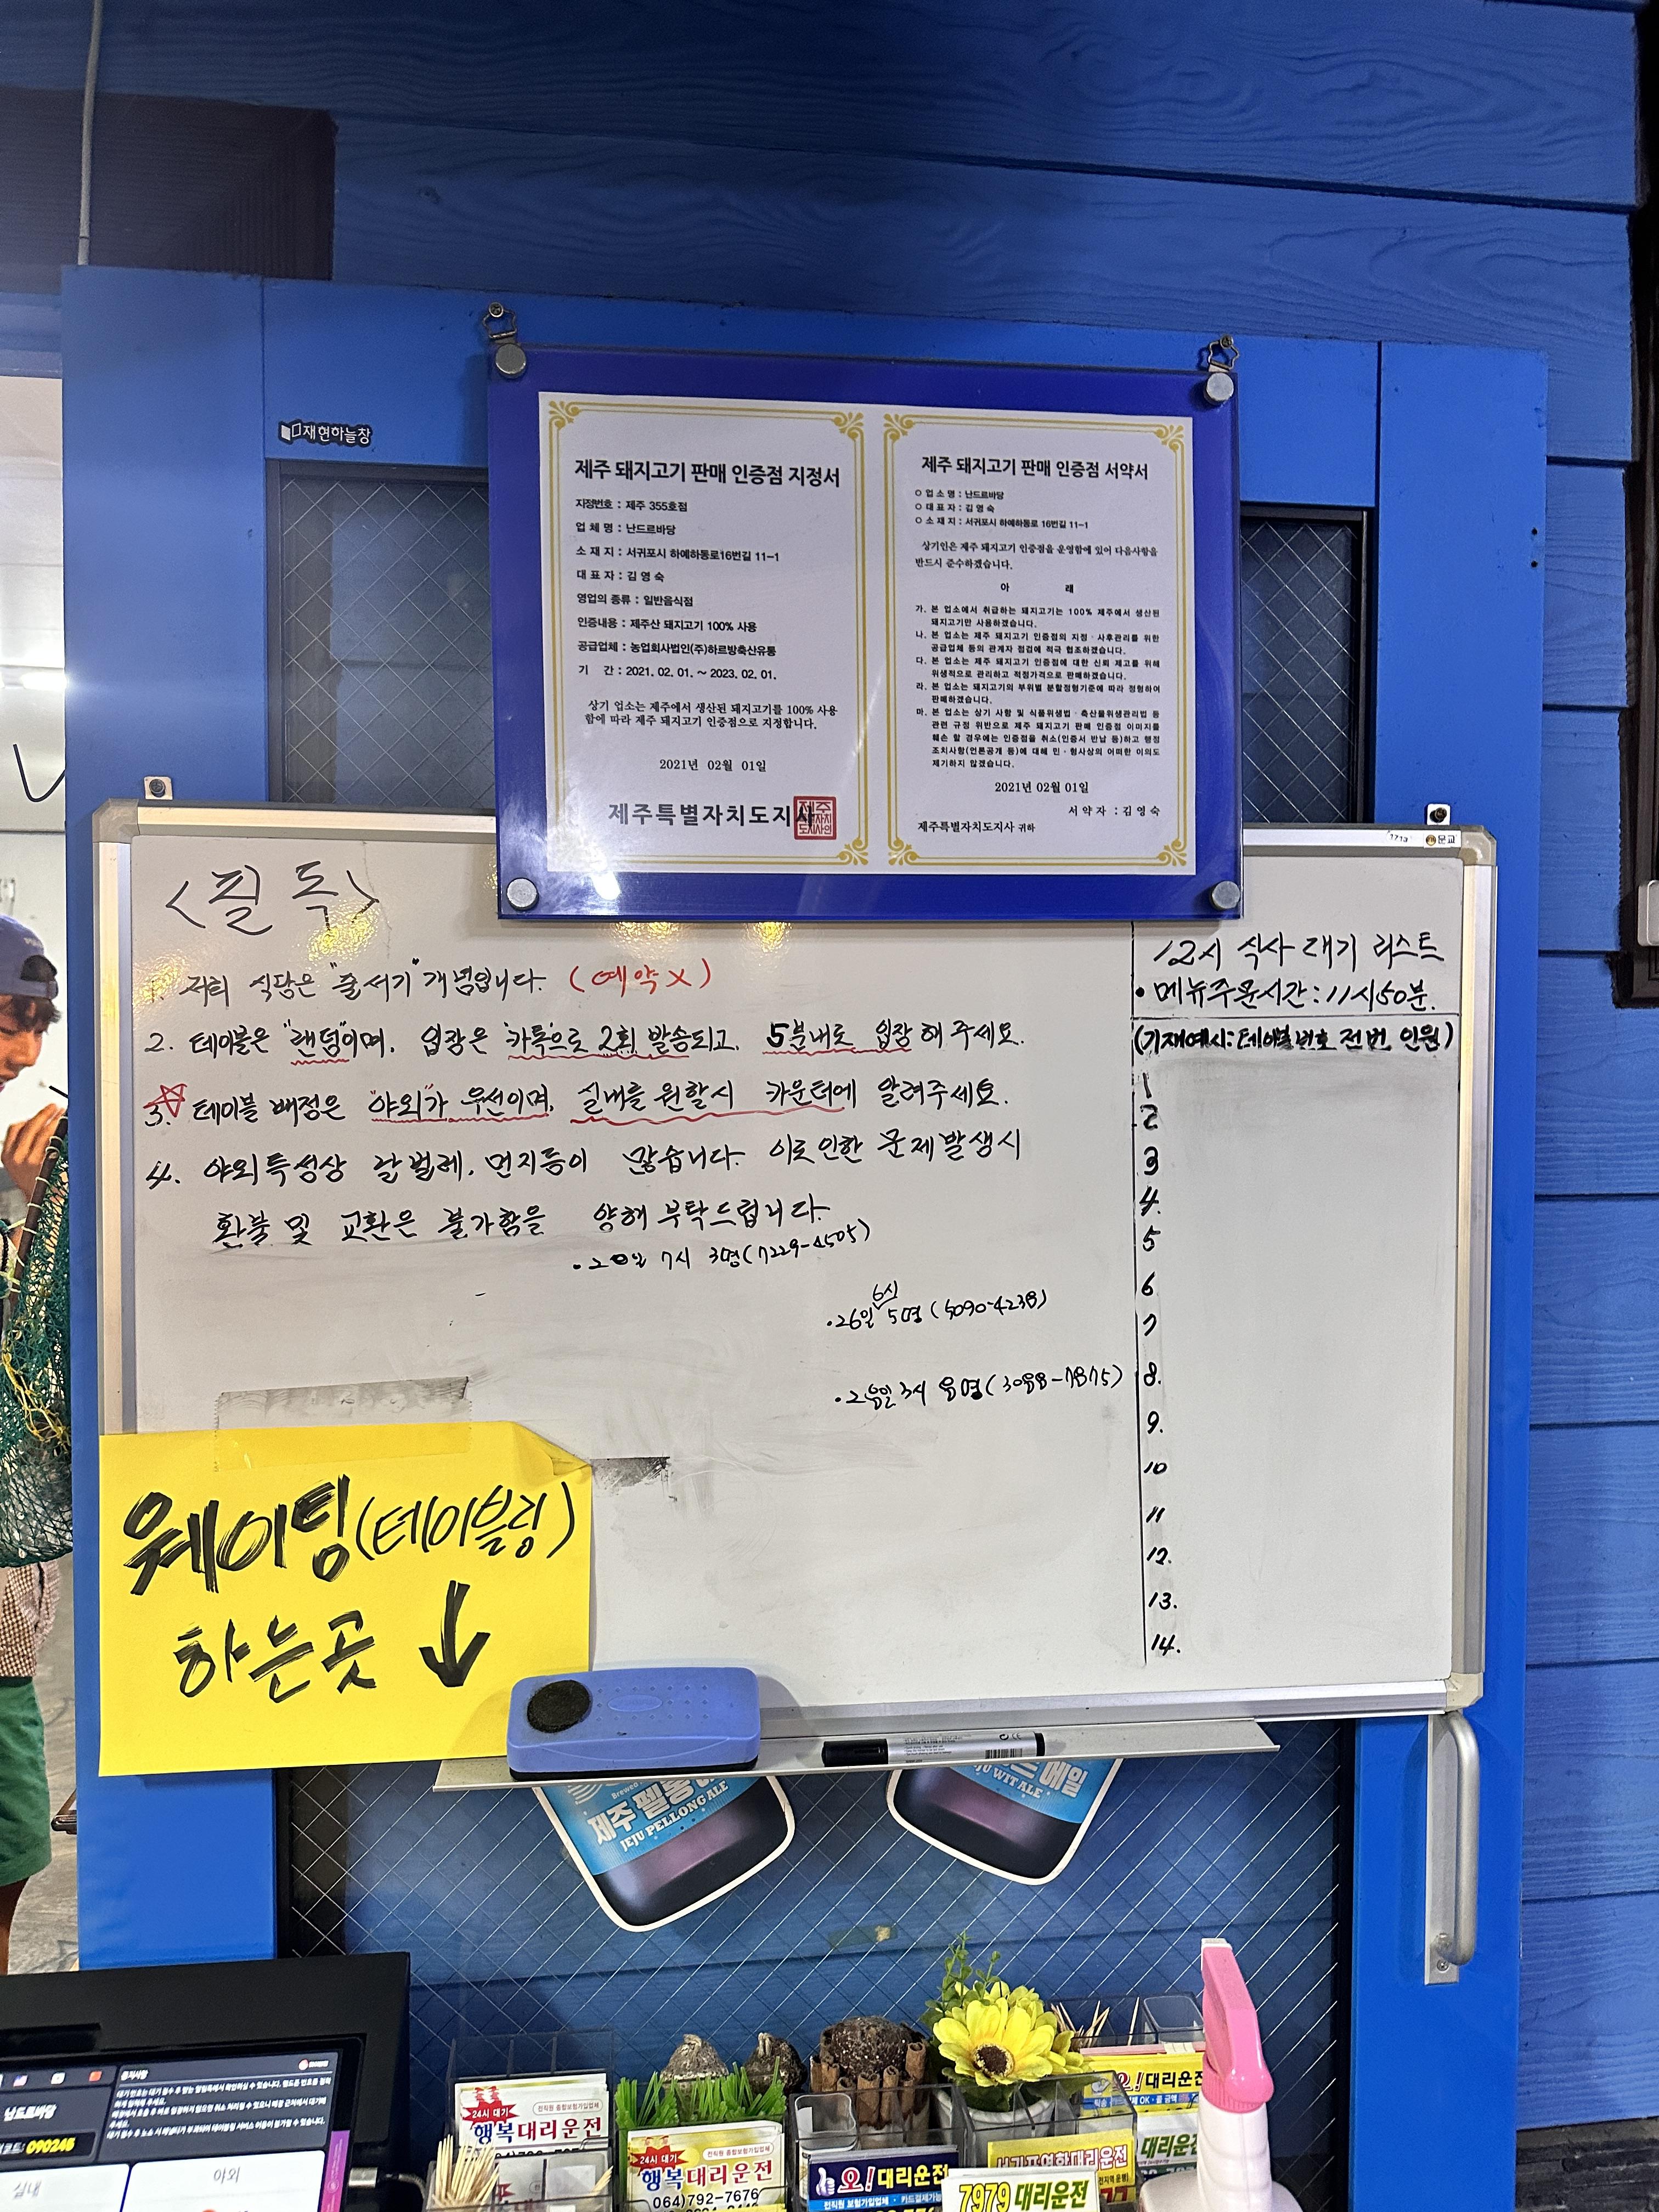 재현하늘창
제주 돼지고기 판매 인증점 지정서
지정번호 : 제주 355호점
업 체 명 : 난드르바당
소 재 지 : 서귀포시 하예하동로16번길 11-1
대 표 자 : 김 영 숙
영업의 종류 : 일반음식점
인증내용 : 제주산 돼지고기 100% 사용
공급업체 : 농업회사법인(주)하르방축산유통
기 간 : 2021. 02. 01. ~ 2023. 02. 01.
상기 업소는 제주에서 생산된 돼지고기를 100% 사용
함에 따라 제주 돼지고기 인증점으로 지정합니다.
2021년 02월 01일
제주특별자치도지사
제주 돼지고기 판매 인증점 서약서
○ 업 소 명 : 난드르바당
○ 대 표 자 : 김 영 숙
○ 소 재 지 : 서귀포시 하예하동로 16번길 11-1
상기인은 제주 돼지고기 인증점을 운영함에 있어 다음사항을
반드시 준수하겠습니다.
아 래
가. 본 업소에서 취급하는 돼지고기는 100% 제주에서 생산된
돼지고기만 사용하겠습니다.
나. 본 업소는 제주 돼지고기 인증점의 지정·사후관리를 위한
공급업체 등의 관계자 점검에 적극 협조하겠습니다.
다. 본 업소는 제주 돼지고기 인증점에 대한 신뢰 제고를 위해
위생적으로 관리하고 적정가격으로 판매하겠습니다.
라. 본 업소는 돼지고기의 부위별 분할정형기준에 따라 정형하여
판매하겠습니다.
마. 본 업소는 상기 사항 및 식품위생법·축산물위생관리법 등
관련 규정 위반으로 제주 돼지고기 판매 인증점 이미지를
훼손 할 경우에는 인증점을 취소(인증서 반납 등)하고 행정
조치사항(언론공개 등)에 대해 민·형사상의 어떠한 이의도
제기하지 않겠습니다.
2021년 02월 01일
서 약 자 : 김 영 숙
제주특별자치도지사 귀하
문교
<필독>
1. 저희 식당은 "줄서기" 개념입니다. (예약X)
2. 테이블은 "랜덤"이며, 입장은 카톡으로 2회 발송되고, 5분내로 입장 해 주세요.
3. 테이블 배정은 "야외"가 우선이며, 실내를 원할시 카운터에 알려주세요.
4. 야외특성상 날벌레, 먼지등이 많습니다. 이로인한 문제발생시
환불 및 교환은 불가함을 양해 부탁드립니다.
·20일 7시 3명(7229-4505)
6시
·26일 5명 (5090-4238)
3시 8명(3088-7875)
12시 식사 대기 리스트
• 메뉴주문시간 : 11시50분.
(기재예시: 테이블번호 전번 인원)
1
2
3
4.
5
6
7
8.
9.
10
11
12.
13.
14.
웨이팅(테이블링)
하는곳 ↓
제주 펠롱
JEJU PELLONG ALE
에일
JU WIT ALE
공지사항
난드르바당
090245
실내
야외
24시 대기
행복대리운전
24시 대기
전직원 종합보험가입업체
행복대리운전
064)792-7676
오! 대리운전
전직원 보험가입업체
7979 대리운전
오! 대리운전
대리운전